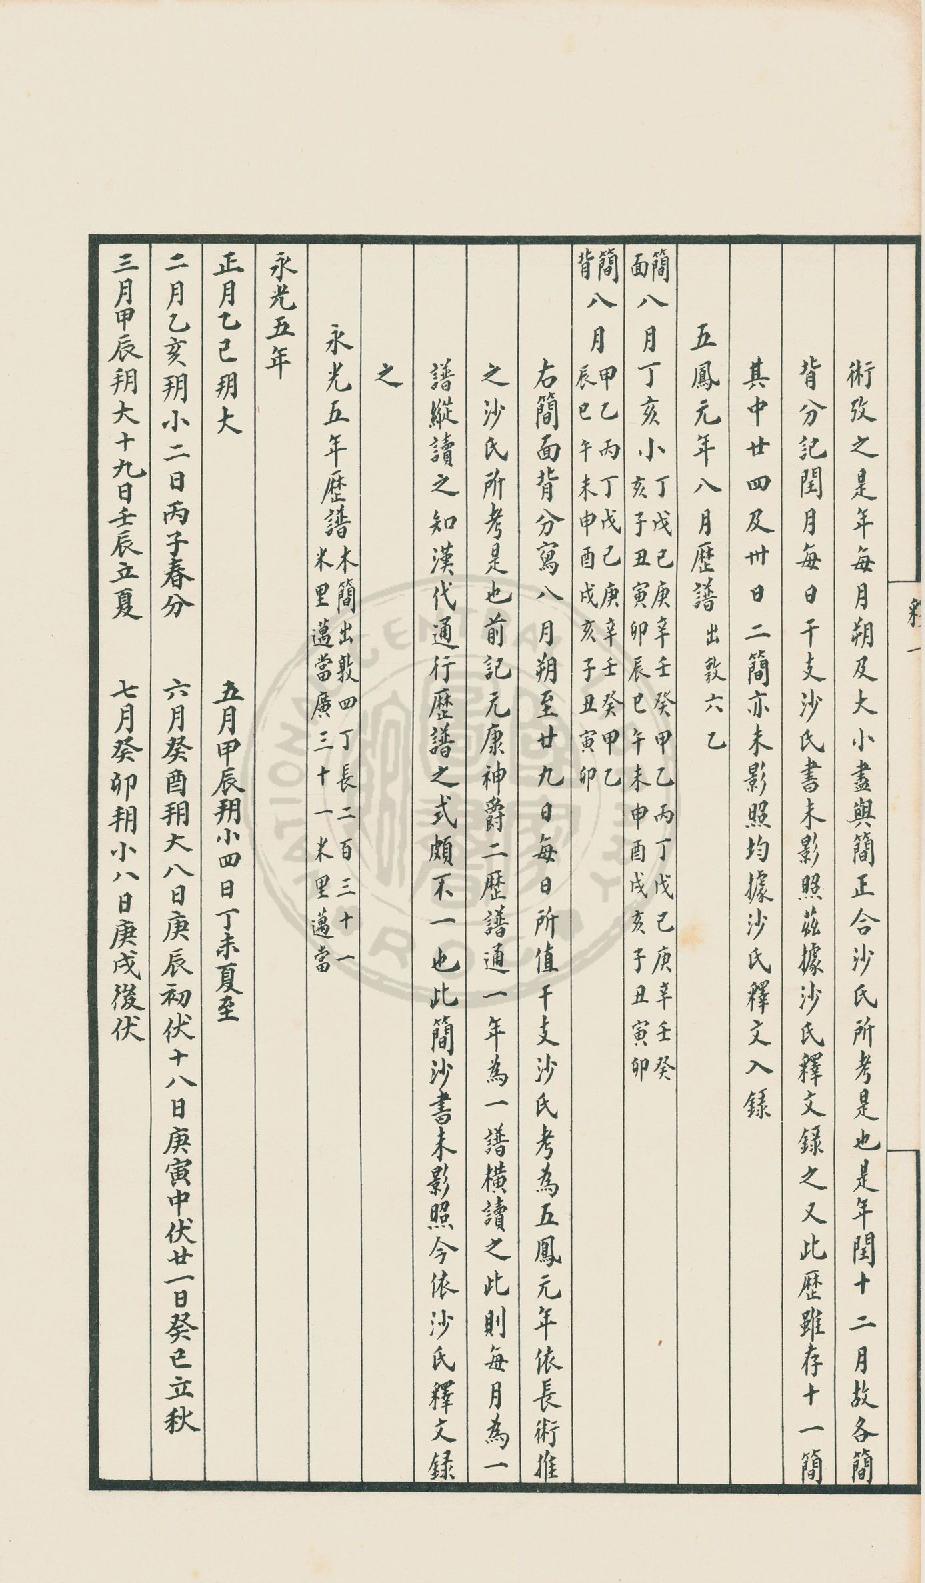 術攷之是年每月朔及大小盡與簡正合沙氏所考是也是年閏十二月故各簡
背分記閏月每日干支沙氏書未影照茲據沙氏釋文錄之又此歷雖存十一簡
其中廿四及卅日二簡亦未影照均據沙氏釋文入錄
五鳳元年八月歷譜 出敦六乙
簡面 八月丁亥小 丁亥 戊子 己丑 庚寅 辛卯 壬辰 癸巳 甲午 乙未 丙申 丁酉 戊戌 己亥 庚子 辛丑 壬寅 癸卯
簡背 八月 甲辰 乙巳 丙午 丁未 戊申 己酉 庚戌 辛亥 壬子 癸丑 甲寅 乙卯
右簡面背分寫八月朔至廿九日每日所值干支沙氏考為五鳳元年依長術推
之沙氏所考是也前記元康神爵二歷譜通一年為一譜橫讀之此則每月為一
譜縱讀之知漢代通行歷譜之式頗不一也此簡沙書未影照今依沙氏釋文錄
之
永光五年歷譜 木簡出敦四丁長二百三十一米里邁當廣三十一米里邁當
永光五年
正月乙巳朔大 五月甲辰朔小四日丁未夏至
二月乙亥朔小二日丙子春分 六月癸酉朔大八日庚辰初伏十八日庚寅中伏廿一日癸巳立秋
三月甲辰朔大十九日壬辰立夏 七月癸卯朔小八日庚戌後伏
NATIONAL CENTRAL LIBRARY